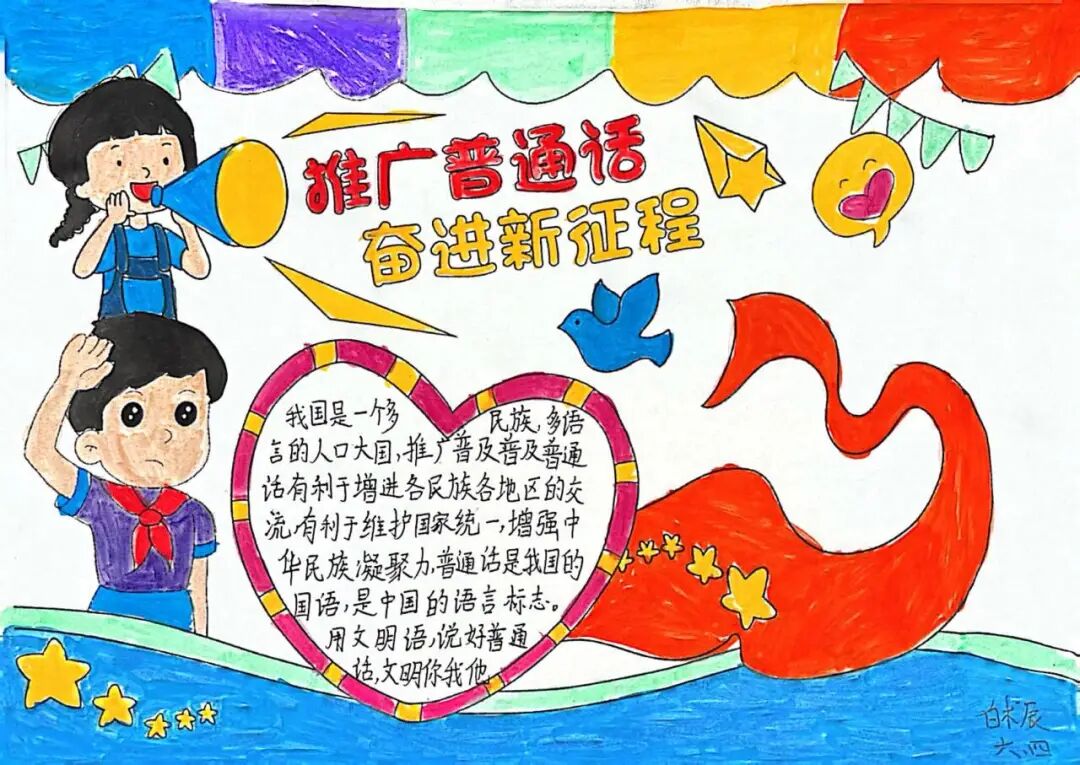 推广普通话
奋进新征程
我国是一个多 民族,多语
言的人口大国,推广普及普及普通
话有利于增进各民族各地区的交
流,有利于维护国家统一,增强中
华民族凝聚力,普通话是我国的
国语,是中国的语言标志。
用文明语,说好普通
话,文明你我他
白术辰
六、四